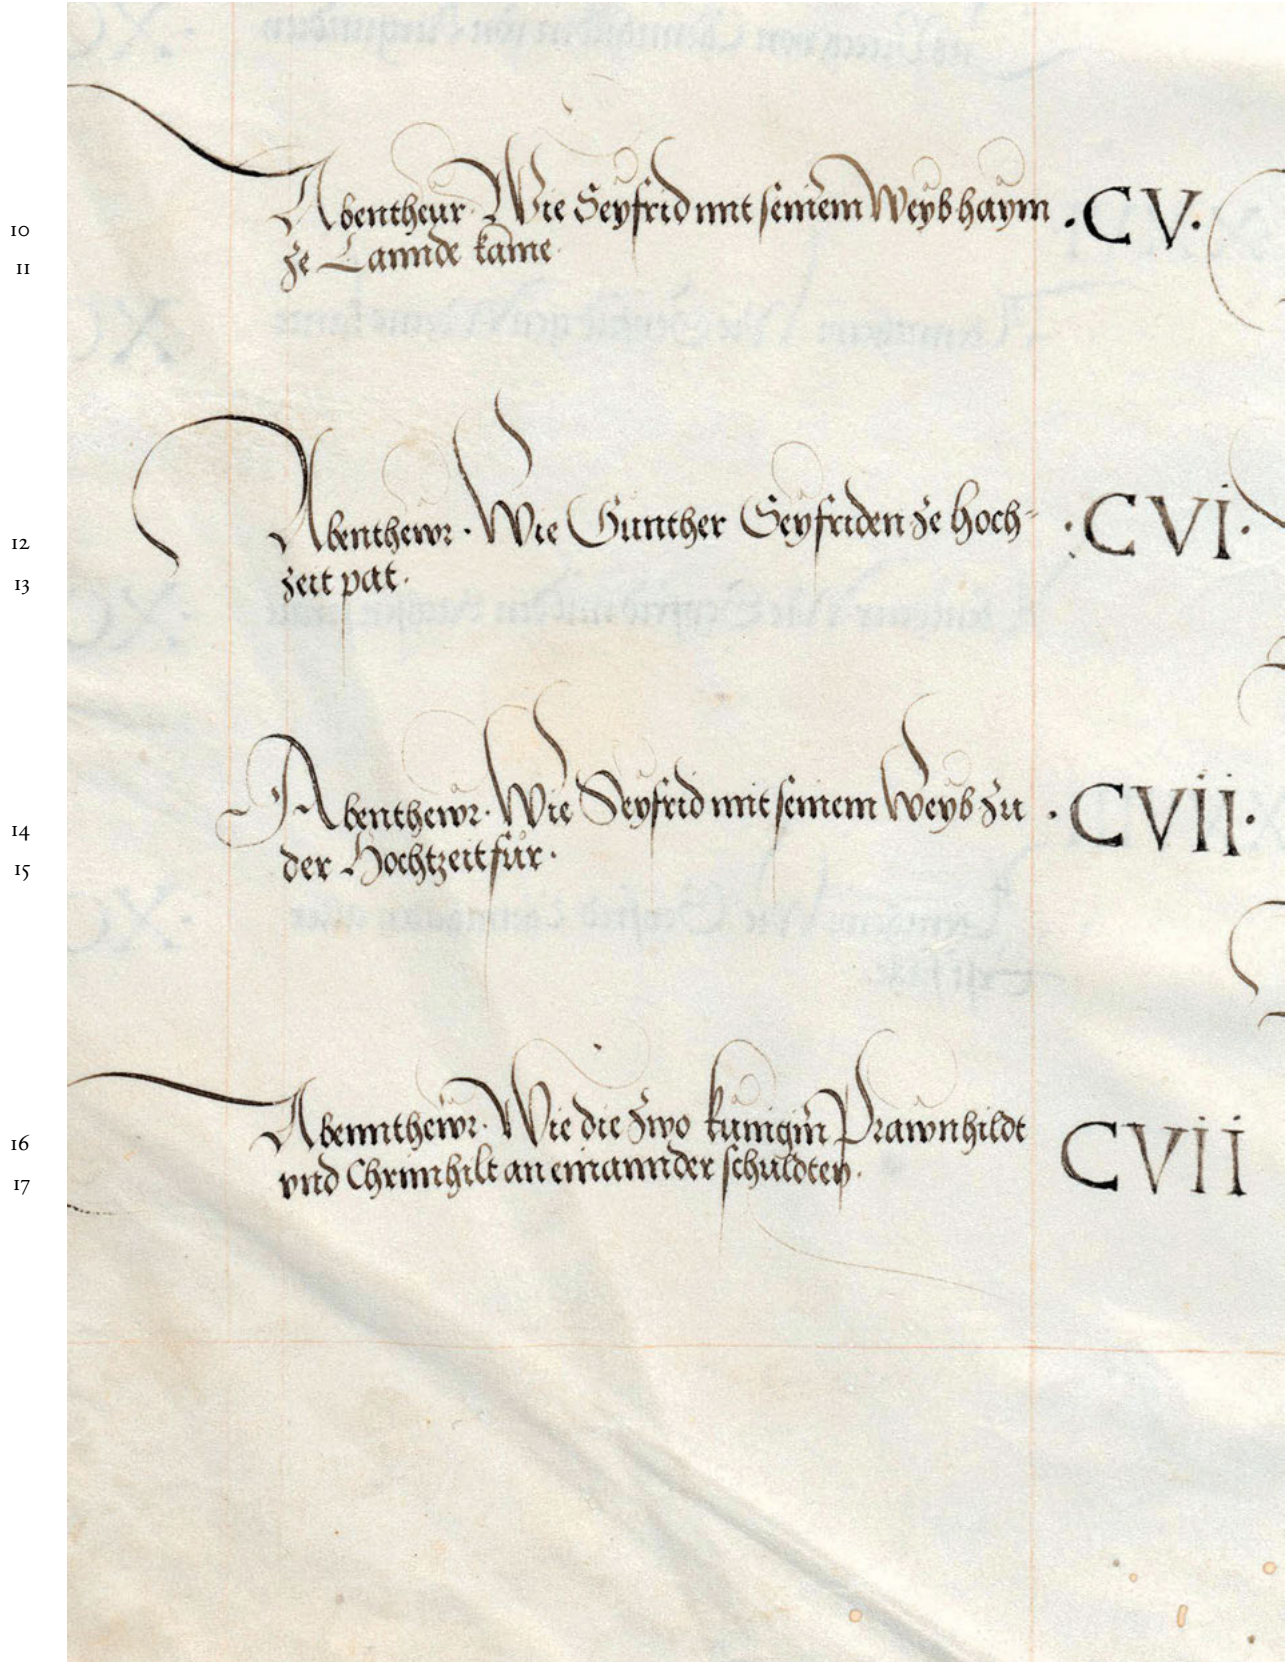 10 Abentheur. Wie Seyfrid mit seinem Weyb haym ·CV·
11 ze Lannde kame.
12 Abenthewr. Wie Gunther Seyfriden ze hoch- ·CVI·
13 zeit pat.
14 Abenthewr. Wie Seyfrid mit seinem Weyb zu ·CVII·
15 der Hochtzeit fůr.
16 Abennthewr. Wie die zwo kunigin Prawnhildt CVII
17 vnd Chrimhilt an einannder schuldten.